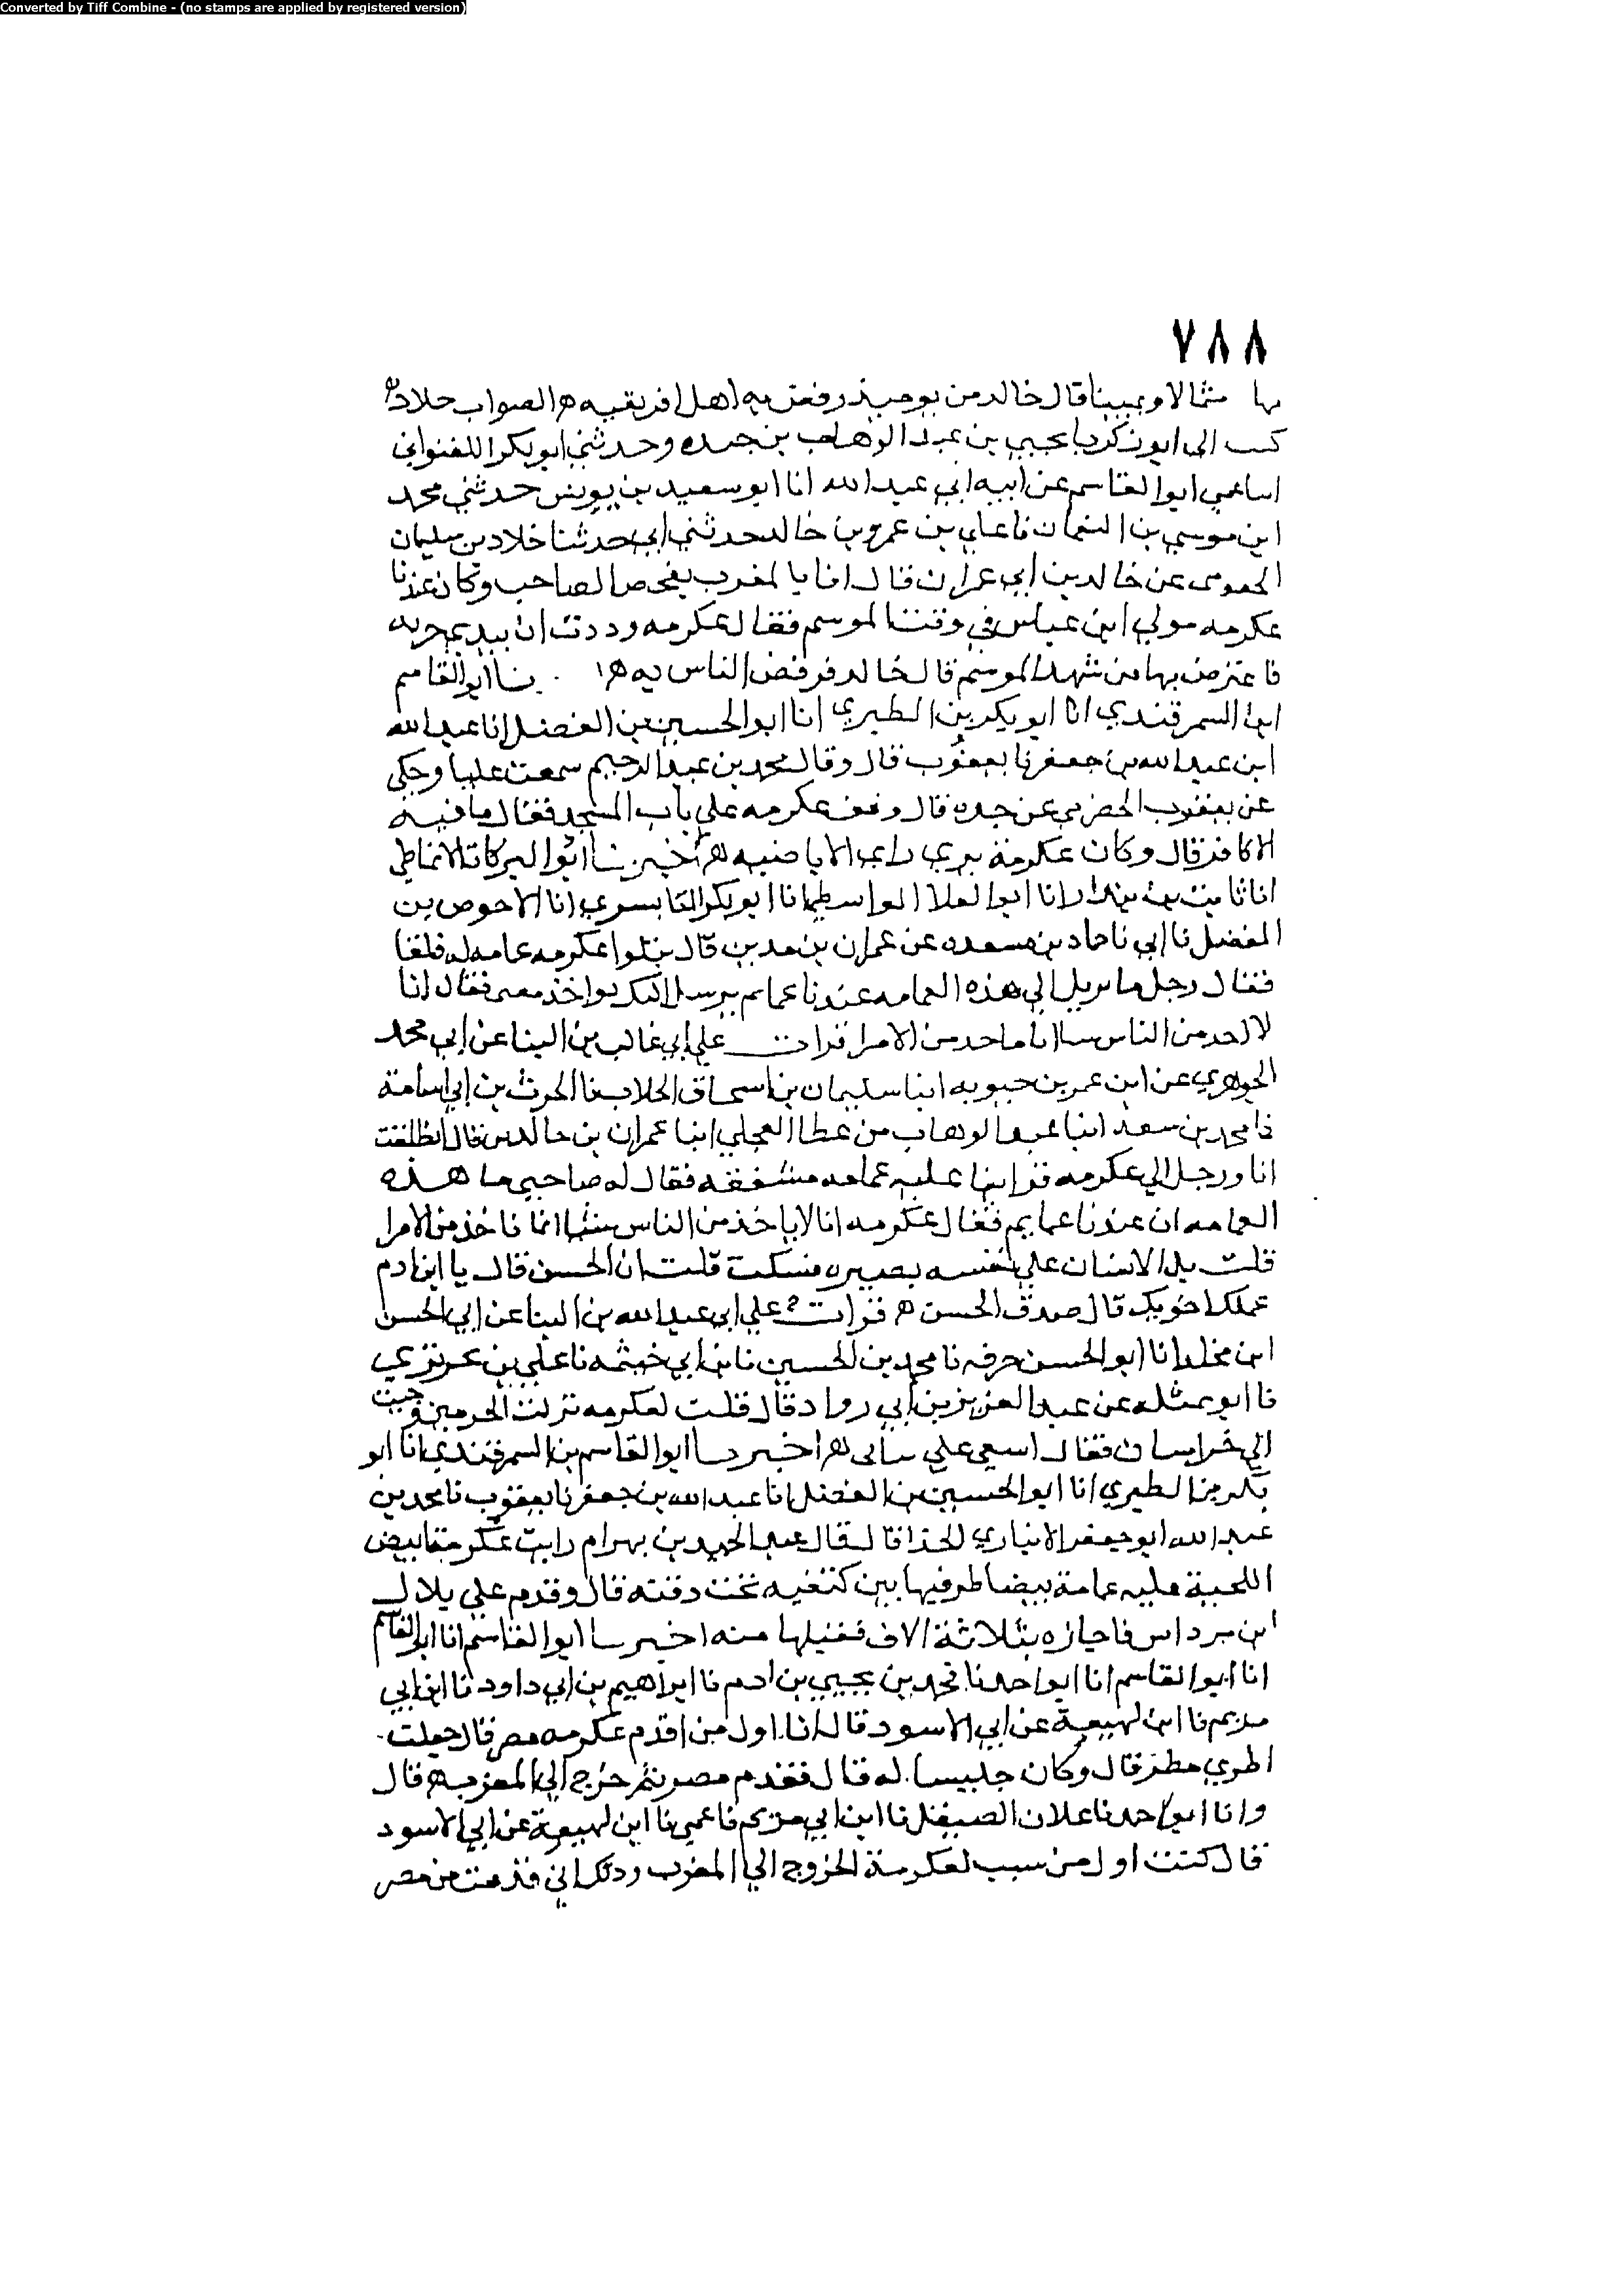 Converted by Tiff Combine - (no stamps are applied by registered version)
٧٨٨
بها شمالا ويمينا قال خالد من يوميذ رفض به اهل افريقيه ه الصواب خلاد ه
كتب الى ابو زكريا يحيي بن عبد الوهاب بن منده وحدثني ابو بكر اللفتواني
انبا عمي ابو القاسم عن ابيه ابي عبد الله انا ابو سعيد بن يونس حدثني محمد
ابن موسي بن النعمان نا علي بن عمرو بن خالد حدثني ابي حدثنا خلاد بن سليمان
الحضرمى عن خالد بن ابي عمران قال انا بالمغرب الصاحب وكان عندنا
عكرمه مولي ابن عباس في وقت الموسم فقال عكرمه وددت ان بيدي حربه
فاعترض بها من شهد الموسم قال خالد فرفض الناس به ه ا نا ابو القاسم
ابن السمرقندي انا ابو بكر بن الطبري انا ابو الحسين بن الفضل انا عبد الله
ابن عبد الله بن جعفر نا يعقوب قال وقال محمد بن عبد الرحيم سمعت عليا وحكى
عن يعقوب الحضرمي عن جده قال وقف عكرمه علي باب المسجد فقال ما فيه
الا كافر قال وكان عكرمة يري راي الاباضيه ه اخبرنا ابو البركات الانماطي
انا ثابت بن بندار انا ابو العلا الواسطي انا ابو بكر البابسيري انا الاحوص بن
المفضل نا ابي نا حماد بن مسعده عن عمران بن حدير قال تناولوا عكرمه عمامه له خلقا
فقال رجل ما تريد الي هذه العمامه عندنا عمايم نرسل اليك بواحده معي فقال انا
لا اخذ من الناس شيا انما اخذ من الامرا قرات علي ابي غالب بن البنا عن ابي محمد
الجوهري عن ابن عمر بن حيويه انبا سليمان بن اسحاق الجلاب نا الحرث بن ابي اسامة
نا محمد بن سعد انبا عبد الوهاب بن عطا العجلي انبا عمران بن حدير قال انطلقت
انا ورجل الي عكرمه فراينا عليه عمامه مشققه فقال له صاحبي ما هذه
العمامه ان عندنا عمايم فقال عكرمه انا لا ناخذ من الناس شيئا انما ناخذ من الامرا
قلت بل الانسان علي نفسه بصيره فسكت قلت ان الحسن قال يا ابن ادم
عملك احق بك قال صدق الحسن ه قرات علي ابي عبد الله بن البنا عن ابي الحسن
ابن مخلد انا ابو الحسن خزفه نا محمد بن الحسين نا بن ابي خيثمه نا علي بن
نا ابو تميله عن عبد العزيز بن ابي رواد قال قلت لعكرمه تركت الحرمين وجيت
الي خراسان فقال اسعي علي بناتى ه اخبرنا ابو القاسم بن السمرقندي انا ابو
بكر بن الطبري انا ابو الحسين بن الفضل انا عبد الله بن جعفر نا يعقوب نا محمد بن
عبد الله ابو جعفر الانباري الحذا قال قال عبد الحميد بن بهرام رايت عكرمة ابيض
اللحية عليه عمامة بيضا طرفيها بين كتفيه تحت دقنه قال وقدم علي بلال
ابن مرداس فاجازه بثلاثة الاف فقبلها منه اخبرنا ابو القاسم انا ابو القاسم
انا ابو القاسم انا ابو احمد نا محمد بن يحيي بن ادم نا ابراهيم بن ابي داود نا ابن ابي
مريم نا ابن لهيعة عن ابي الاسود قال انا اول من اقدم عكرمه مصر قال جعلت
اطري مطر قال وكان جليسا له قال فقدم مصر ثم خرج الي المغرب ه قال
وانا ابو احمد نا علان الصيقل نا ابن ابي مريم نا عمي نا ابن لهيعة عن ابي الاسود
قال كنت اول من سبب لعكرمة الخروج الي المغرب وذلك اني قدمت من مصر